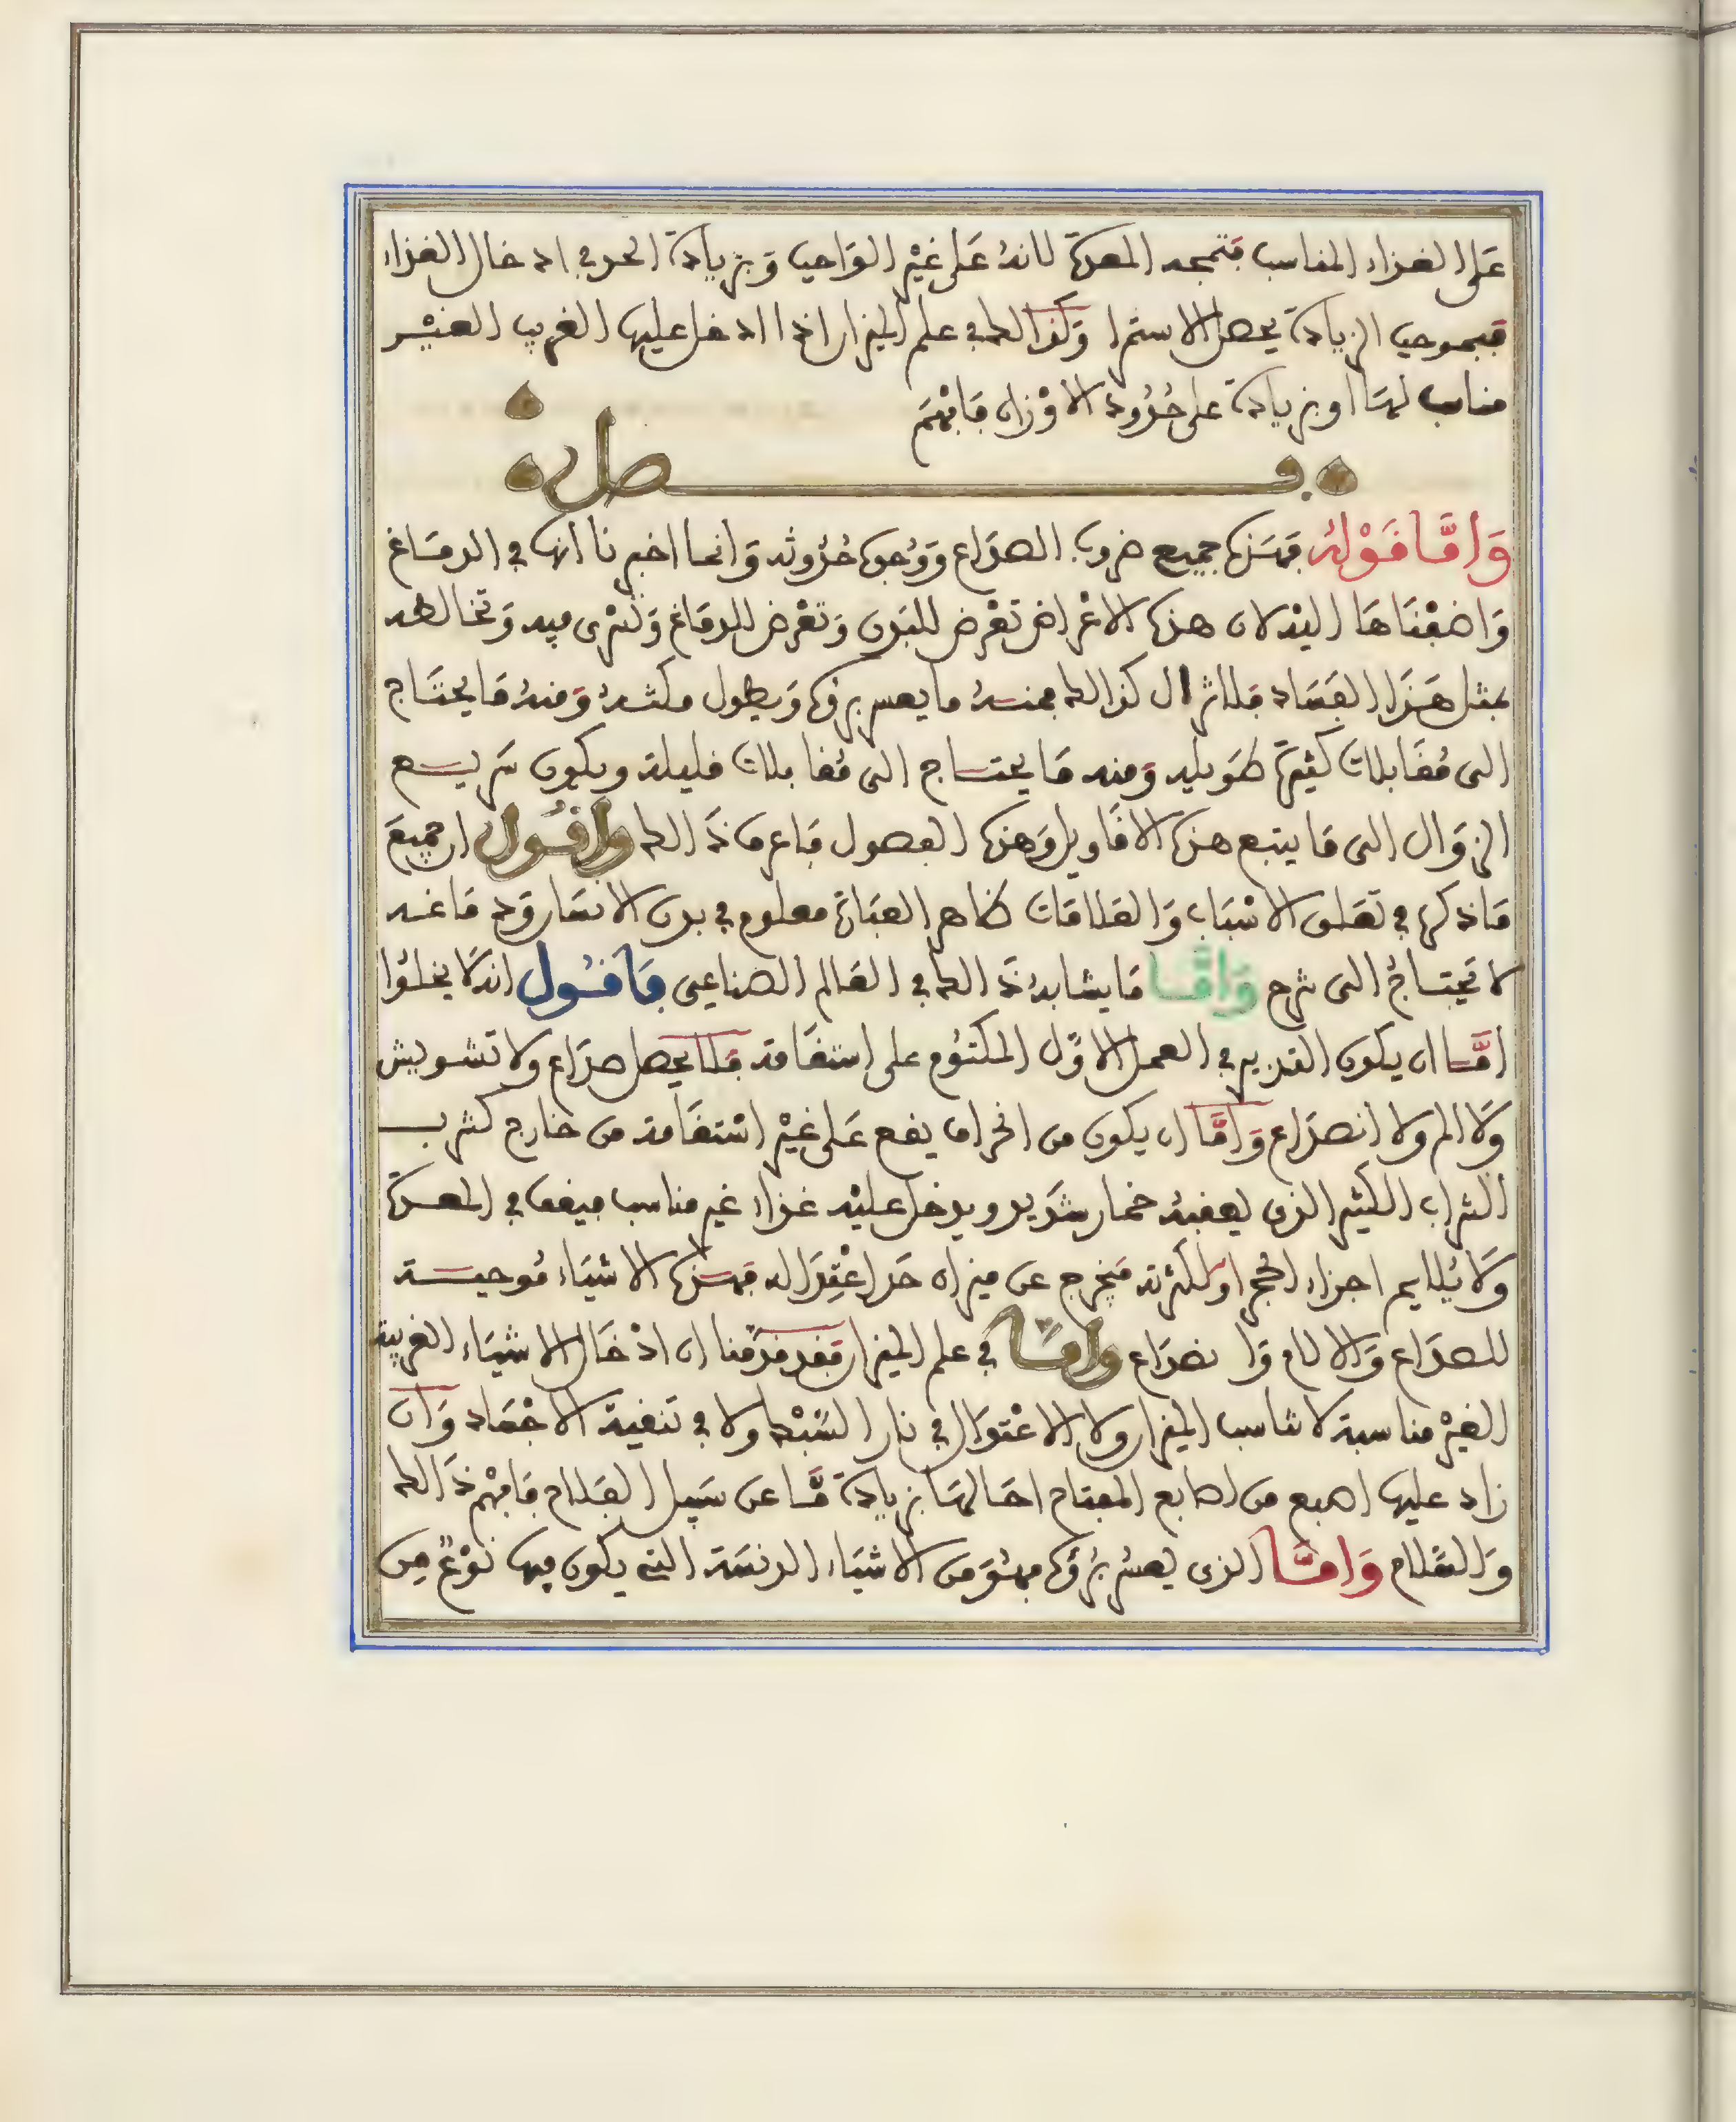 على الغذاء المناسب فتمجه المعدة لانهُ عَلى غيْر الوَاجب وَبزيادة الحد في ادخال الغذاء
فبموجب الزيادة يحصل الاستمرا وَكذالك في علم الميزان اذا ادخل عليها الغريب الغيْر
مناسب لهَا او بزيادة على حُدُود الاوْزان فَافْهَم
فصل
وَامَّا قَوْلهُ فهَذه جميع ضروب الصدَاع وَوُجوه حُدُوثه وَانما اخبرنا انها في الدمَاغ
وَاضفْنَاهَا اليْه لان هذه الاعْراض تعْرض للبَدن وَتعْرض للدمَاغ وَتسْرى فيه وَتخالطه
بمثل هَذَا الفسَاد فلا تزال كذالك فمنهُ ما يعسر برؤه وَيطول مكثهُ وَمنهُ مَا يحتَاج
الى مُقَابلات كثيرَة طوَيله وَمنه مَا يحتاج الى مُقابلات قليلة ويكون سَريع
الزوَال الى مَا يتبع هذه الاقَاويل وَهذه الفصول فاعرف ذَالك وَاقُول ان جميعَ
مَا ذكره في تعَلق الاسْبَاب وَالعَلامَات ظاهر العبَارة معلوم في بدن الانسَان وَمَا عنه
لا تحْتاجُ الى شرح وَامَّا مَا يشابهُ ذَالك في العَالم الصناعي فَاقُول انهُ لا يخلوُا
امَّا ان يكون التدبير في العمل الاوَّل المكتوُم على استقَامة فَلا يحصل صدَاع ولا تشويش
وَلا الم ولا انصدَاع وَامَّا ان يكون من انحراف يقع عَلى غيْر اسْتقَامة من خارج كشرب
الشراب الكثير الذى يعقبهُ خمار شَديد ويدخل عليْه غذاء غير مناسب فيقف في المعدة
وَلا يُلايم اجزاء الحجر او لكثرته فيخرج عن ميزان حَد اعْتِدَاله فهَذه الاشيَاء مُوجبة
للصدَاع وَالالام وَا نصدَاع وَامَّا في علم الميزان فقد قدمْنا ان ادْخَال الاشيَاء الغريبة
الغيْر مناسبة لا تناسب الميزان ولا الاعْتدَال في نار السَّبْك ولا في تنقية الاجْسَاد وَان
زاد عليها اصبع من اصابع المفتاح احَالهَا بزيادة مَّا عن سَبيل الفلاح فَافْهم ذَالك
وَالسَّلام وَامَّا الذى يعسُر بُرْؤه فهُوَ من الاشيَاء الدنسَة التى يكون فيها نَوْعٌ مِن